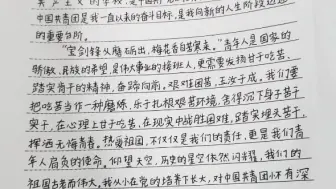 中国共青团是我一直以来的奋斗目标,是我向新的人生阶段迈进
的重要台阶。
“宝剑锋从磨砺出,梅花香自苦寒来。”青年人是国家的
骄傲,民族的希望,是伟大事业的接班人,更需要发扬甘于吃苦、
踏实肯干的精神,奋蹄向前。艰难困苦,玉汝于成。我们要
把吃苦当作一种磨炼,乐于扎根艰苦环境,舍得沉下身子苦干
实干,在心理上甘于吃苦,在现实中战胜困难,踏实埋头苦干,
挥洒无悔青春。热爱祖国,不仅仅是我们的责任,更是我们青
年人肩负的使命。仰望太空,历史的星空依然闪耀,我们的
祖国古老而伟大。我从小在党的培养下长大,对中国共青团怀有深